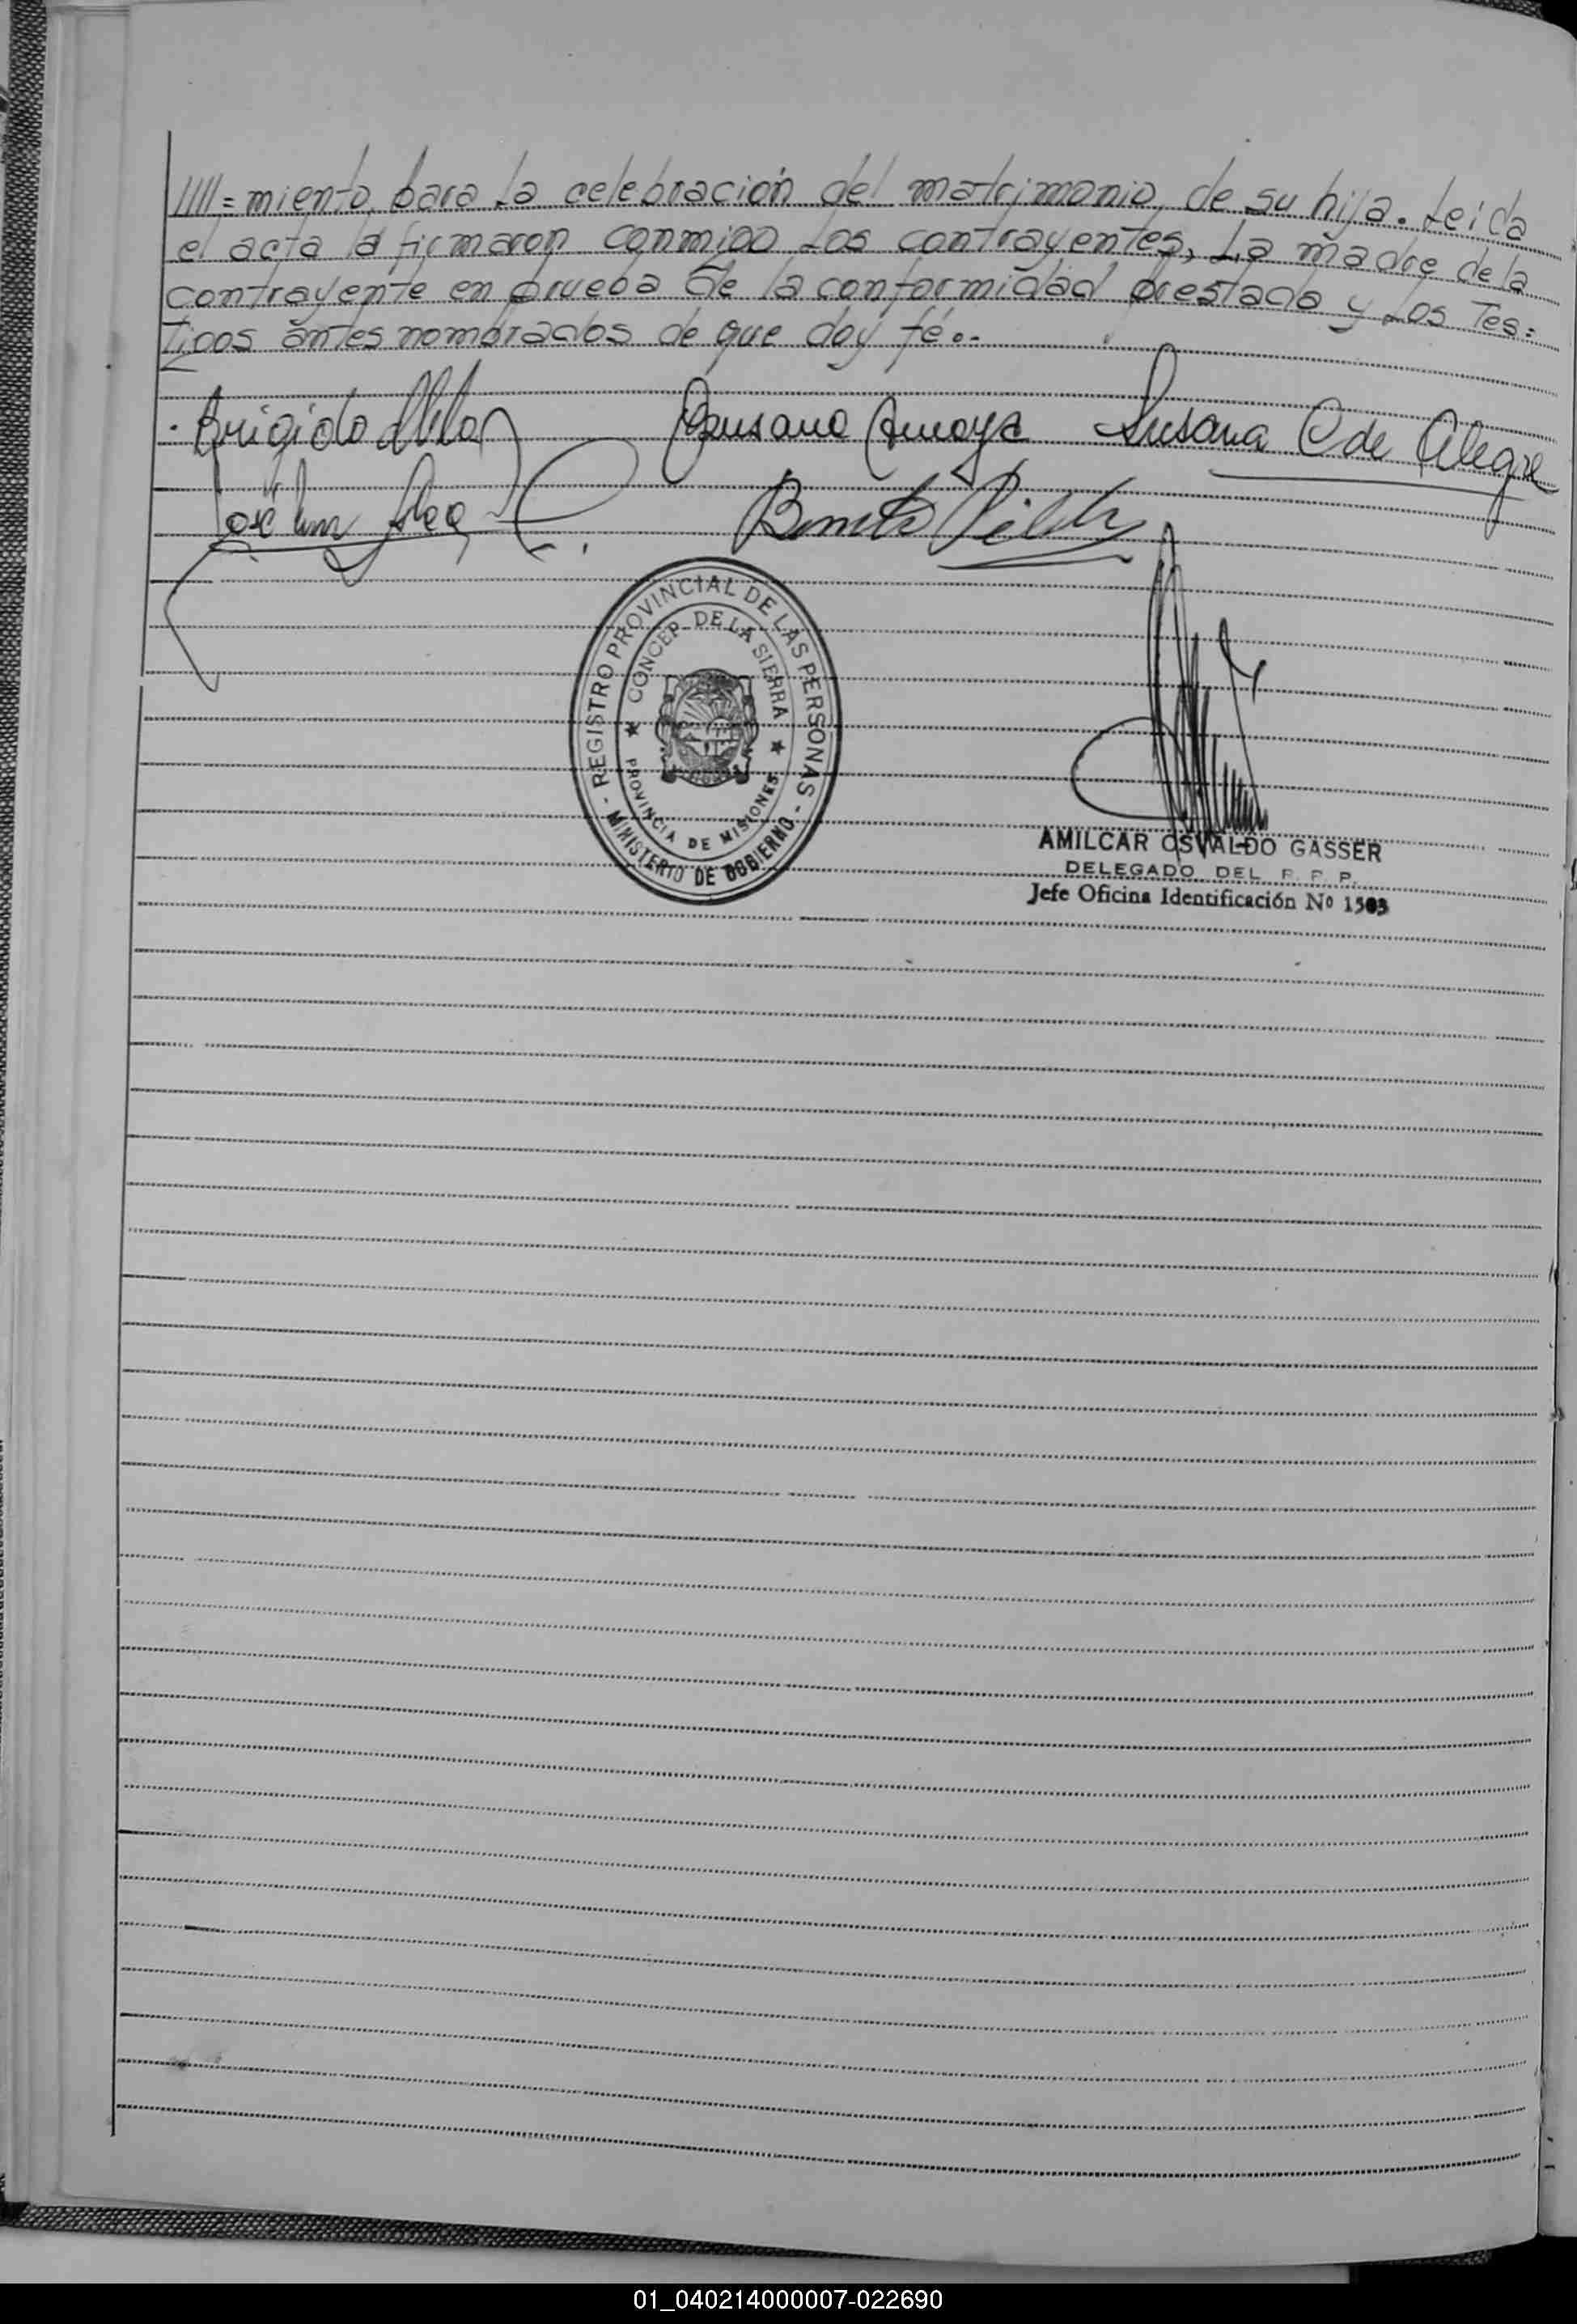 ////=miento, para La celebración del matrimonio, de su hija. Leida
el acta la firmaron conmigo Los contrayentes, La madre de la
contrayente en prueba de la conformidad prestada y Los Tes=
tigos antes nombrados de que doy fé.-
Brigido
Susana C de Alegre
Benito
REGISTRO PROVINCIAL DE LAS PERSONAS
CONCEP. DE LA SIERRA
PROVINCIA DE MISIONES
- MINISTERIO DE GOBIERNO -
AMILCAR OSVALDO GASSER
DELEGADO DEL R. P. P.
Jefe Oficina Identificación Nº 1503
01_040214000007-022690